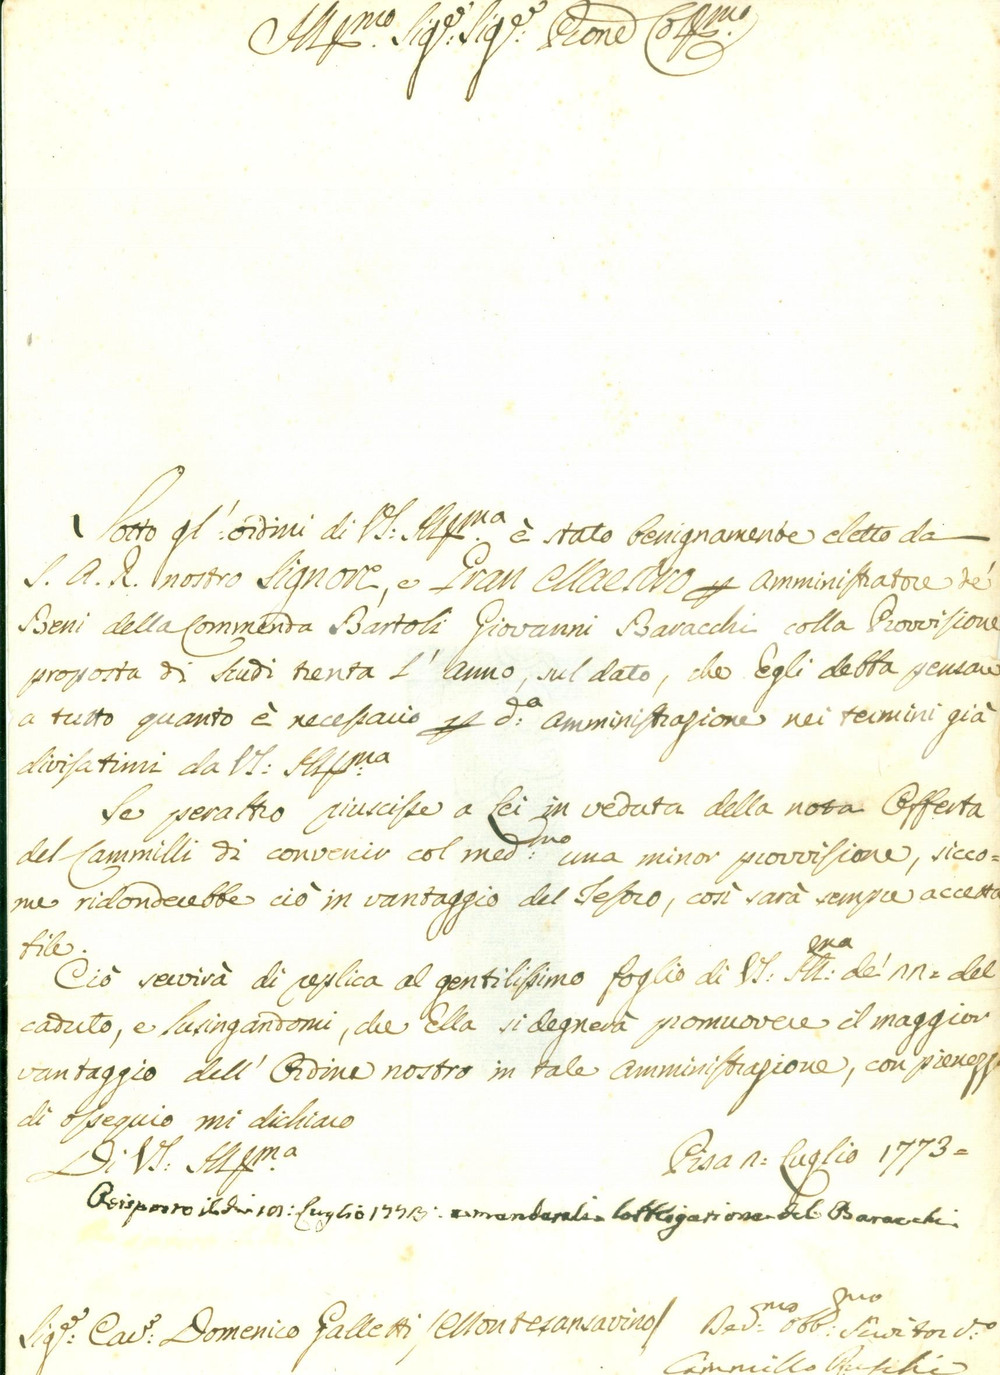 Illmo. Sigre: Sigre: Prone Colmo.
Sotto gl': ordini di VS: Illma è stato benignamente eletto da
S. A. R. nostro Signore, e Gran Maestro p amministratore de'
Beni della Commenda Bartoli Giovanni Baracchi colla Provvisione
proposta di scudi trenta l'anno, sul dato, che Egli debba pensare
a tutto quanto è necessario p d:a amministrazione nei termini già
divisatimi da VS: Illma
Se peraltro riuscisse a Lei in veduta della nota Offerta
del Cammilli di convenir col medmo: una minor provvisione, sicco=
me ridonderebbe ciò in vantaggio del Tesoro, così sarà sempre accetta
bile.
Ciò servirà di replica al gentilissimo foglio di VS: Illma: de' 11= del
caduto, e lusingandomi, che Ella si degnerà promuovere il maggior
vantaggio dell'Ordine nostro in tale amministrazione, con pienezza
di ossequio mi dichiaro
Di VS: Illma
Pisa 1: Luglio 1773=
Risposto il dì 101: Luglio 1773: e mandatali l'obbligazione del Baracchi
Sigre: Cav:e Domenico Galletti /Montesansavino/
Devmo: Obbmo: Servitor V:o
Cammillo